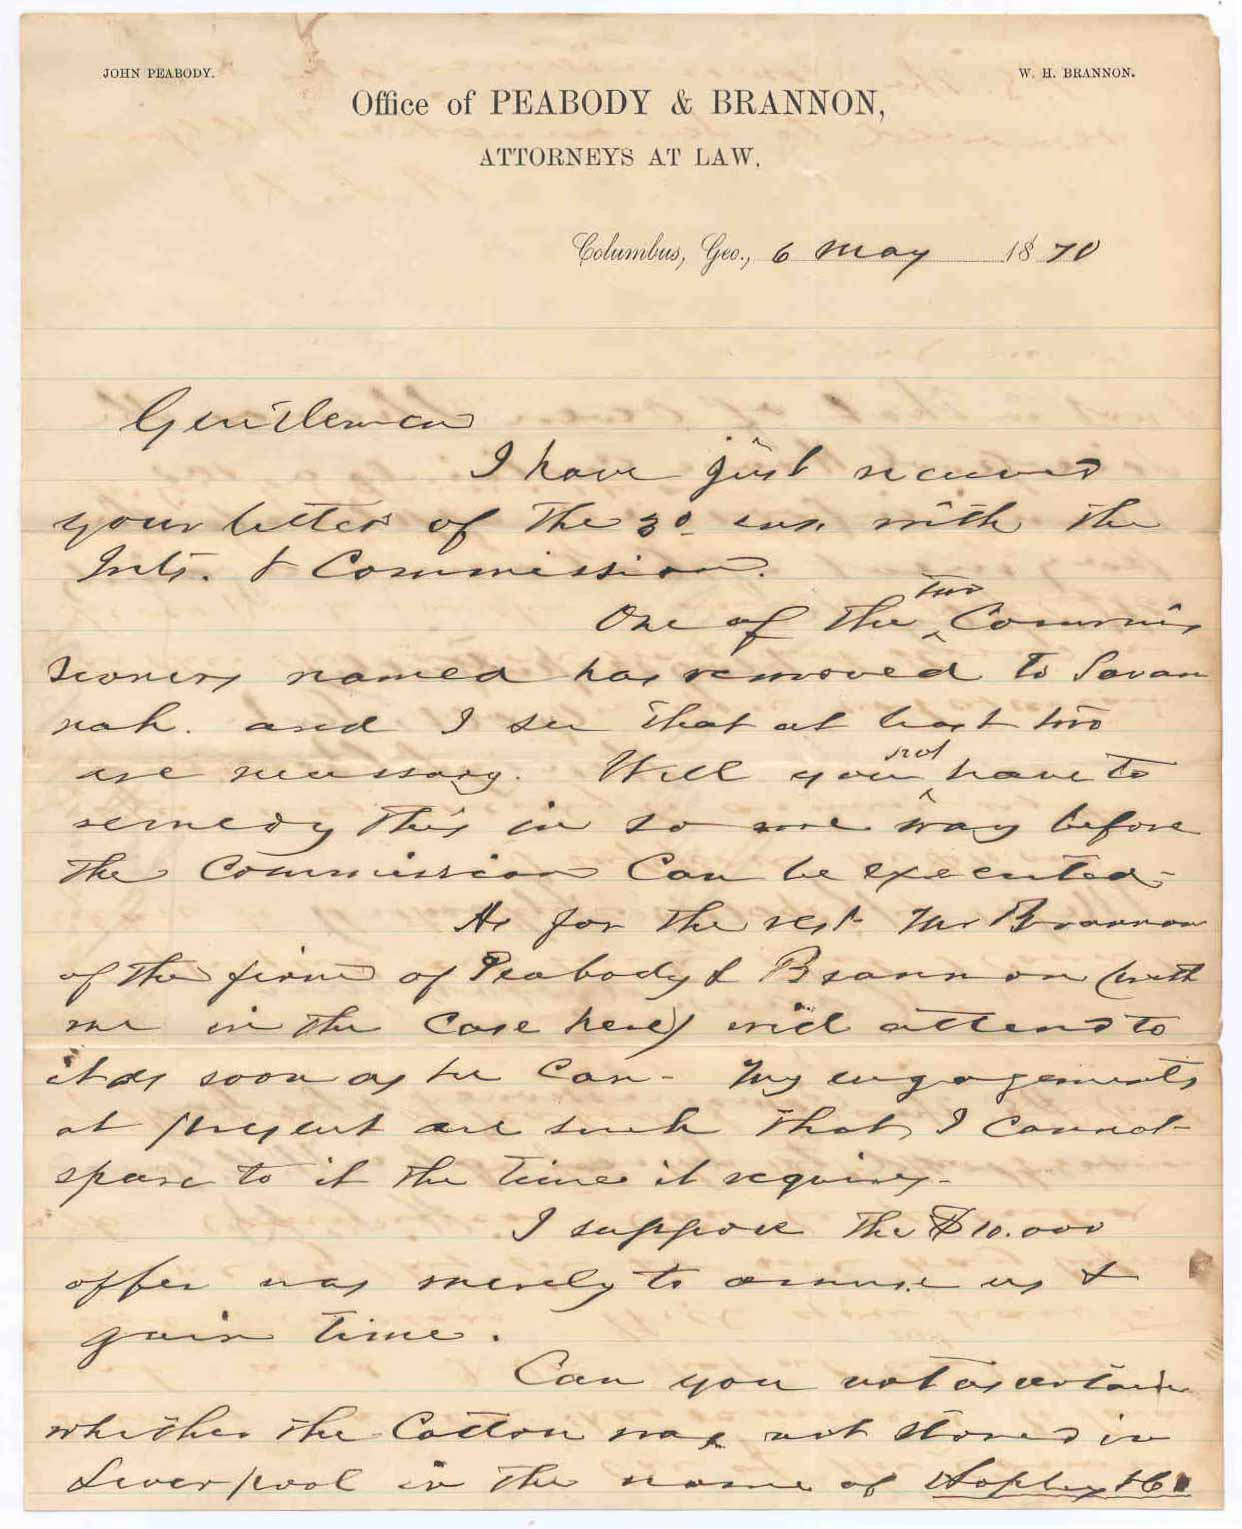 JOHN PEABODY. W. H. BRANNON.
Office of PEABODY & BRANNON,
ATTORNEYS AT LAW,
Columbus, Geo., 6 May 1870
Gentlemen
I have just received
your letter of the 3d ins. with the
Ints. & Commission.
One of the two Commis
sioners named has removed to Savan
nah. and I see that at least two
are necessary. Will you not have to
remedy this in some way before
the Commission Can be executed-
As for the rest Mr Brannon
of the firm of Peabody & Brannon (with
me in the Case here) will attend to
it as soon as he Can- My engagements
at present are such that I cannot
spare to it the time it requires-
I suppose the $10.000
offer was merely to amuse us &
gain time.
Can you not ascertain
whether the Cotton was not stored in
Liverpool in the name of Hopley & Co